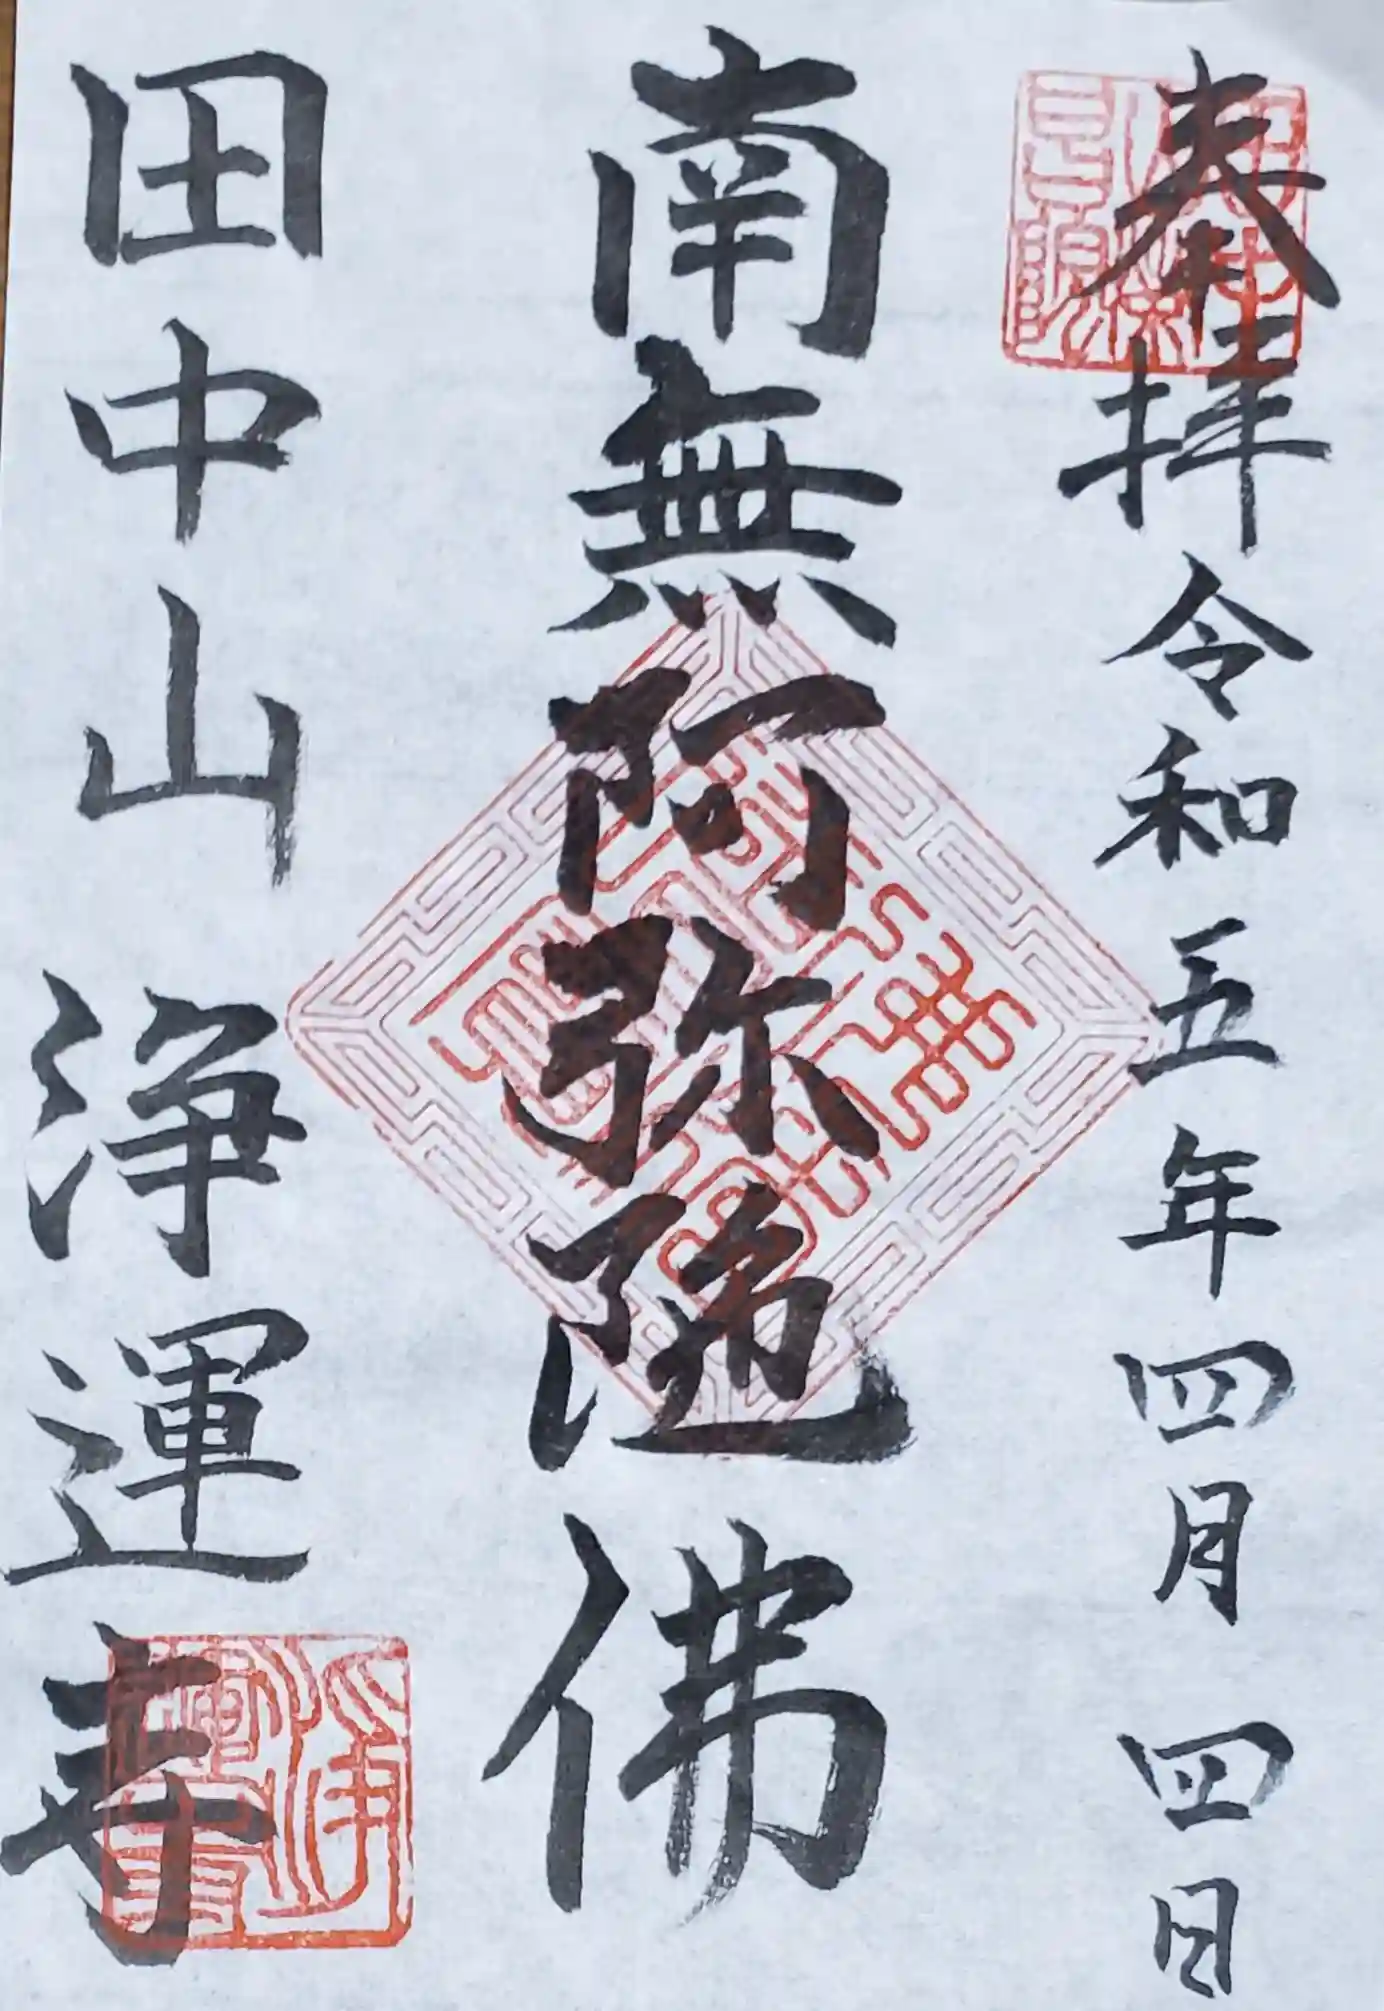 奉拝 令和五年四月四日
南無阿弥陀佛
田中山 浄運寺
浄運寺